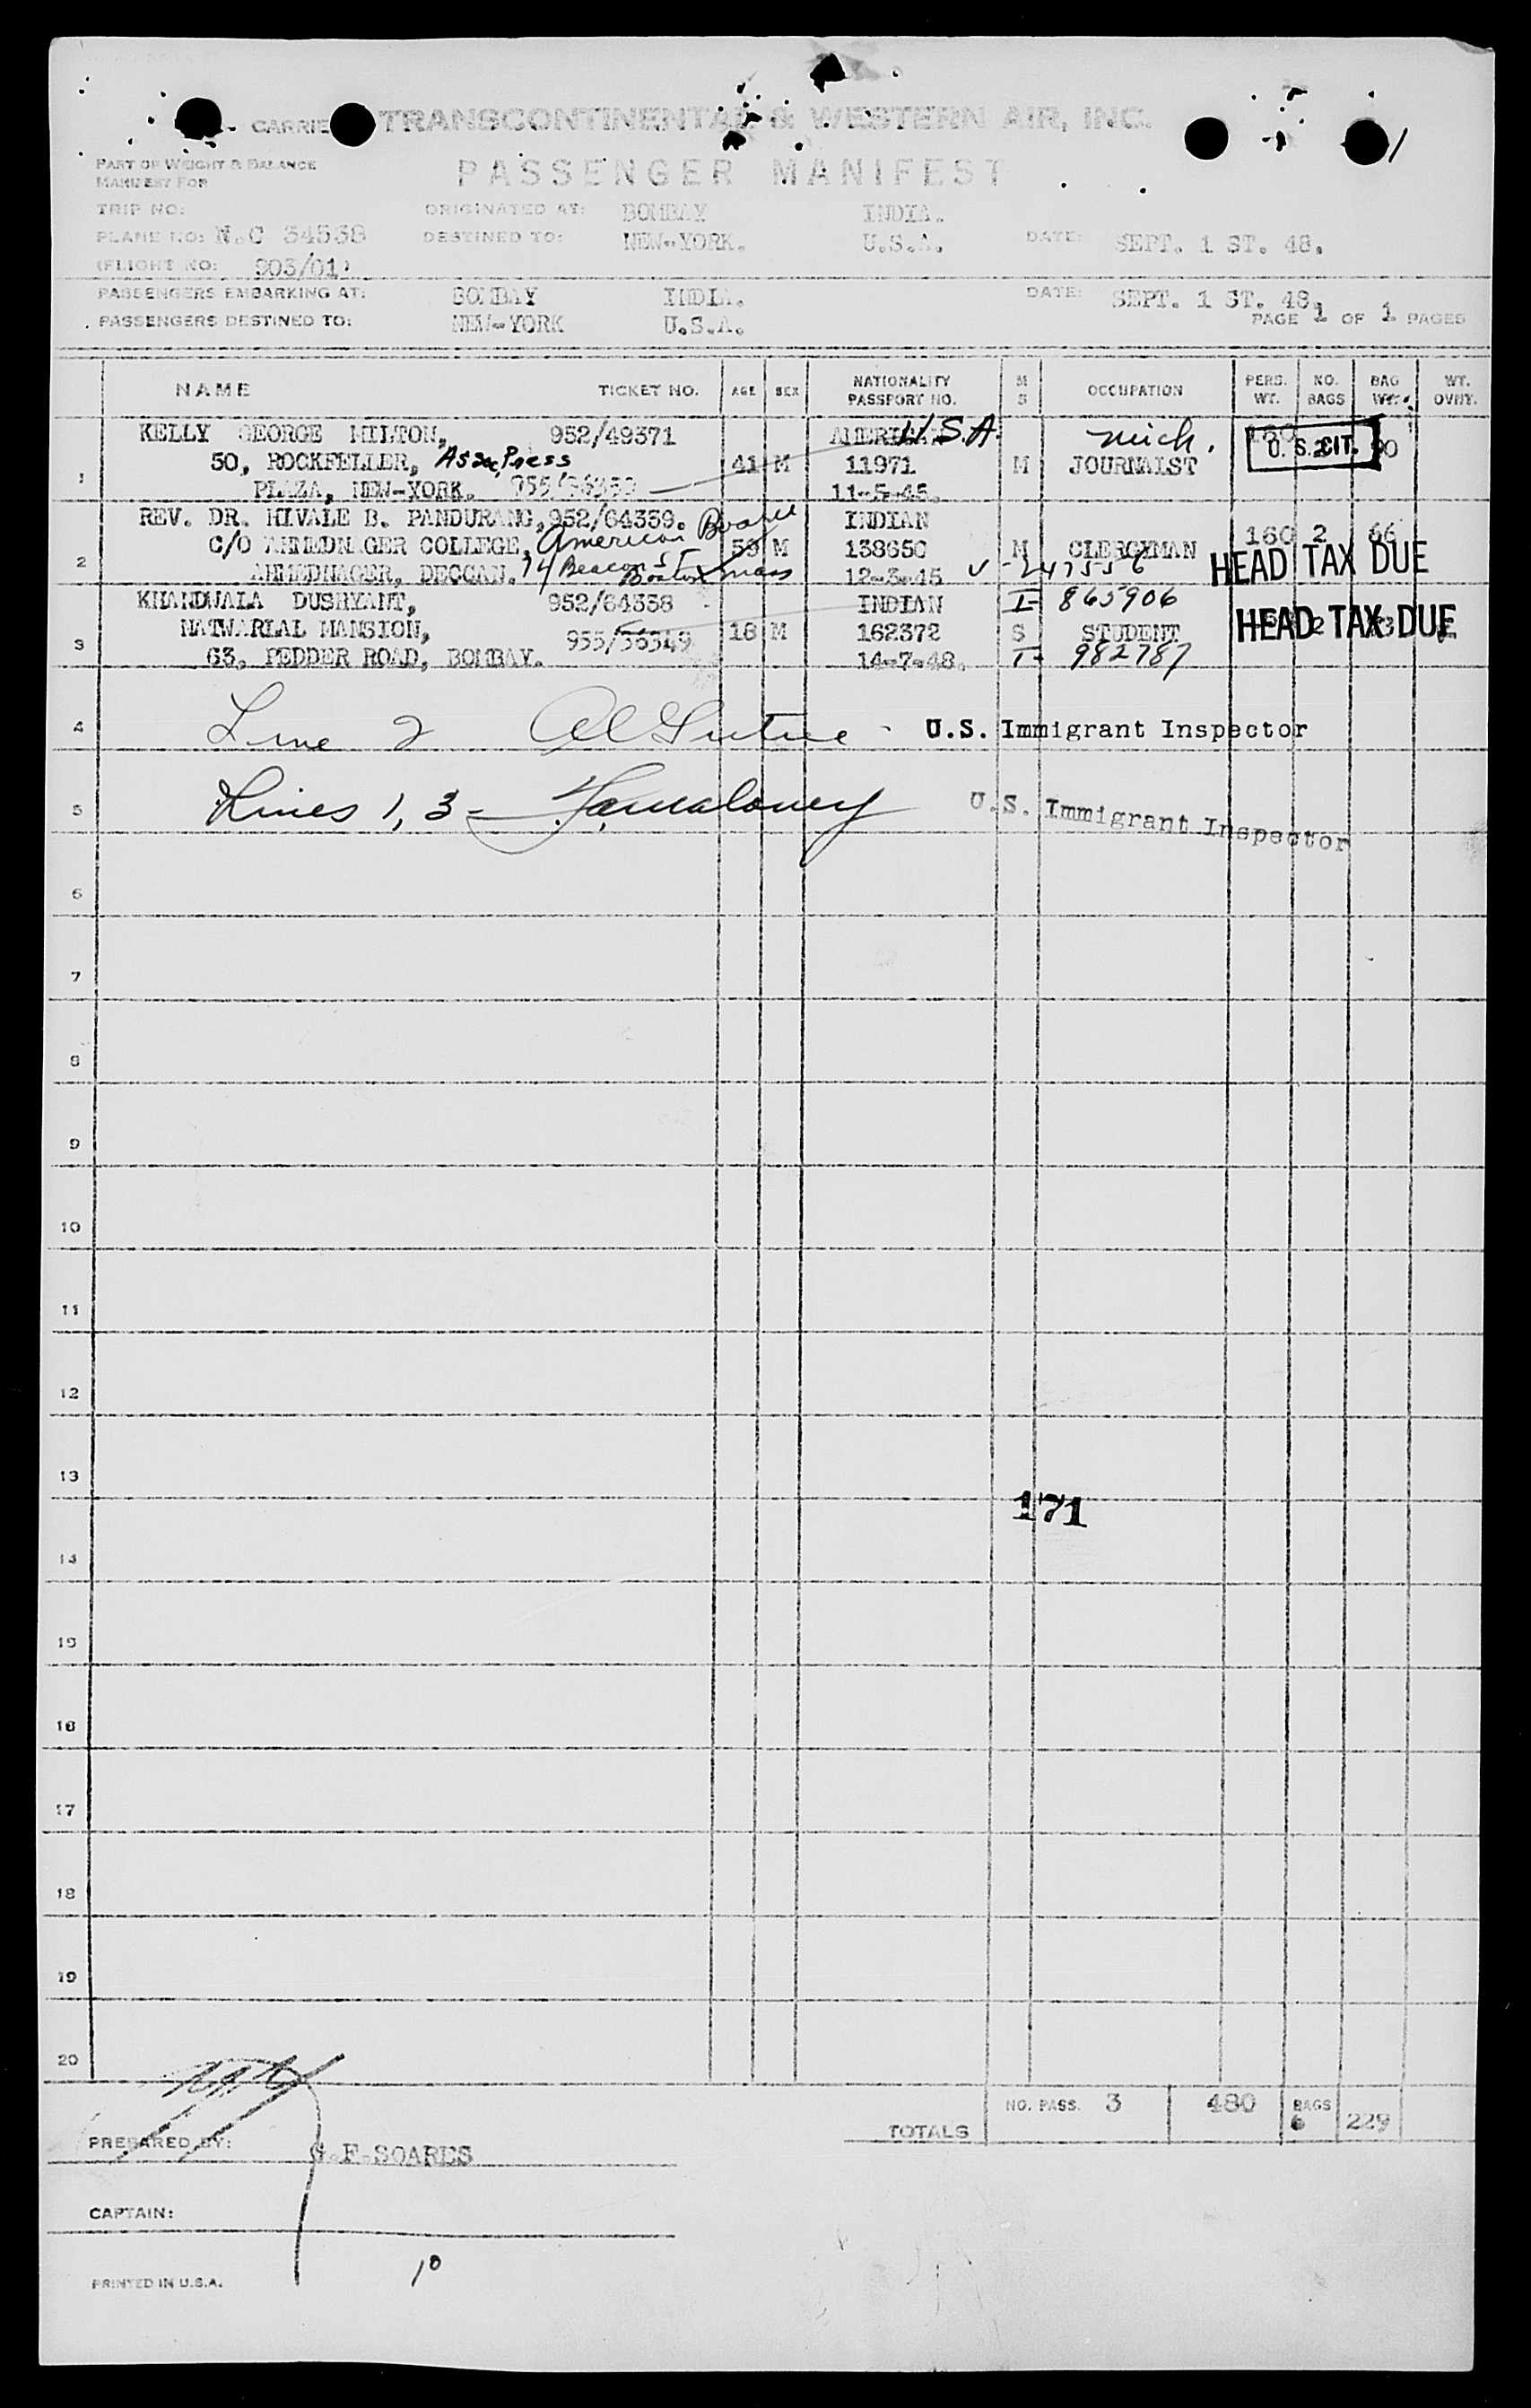 CARRIE TRANSCONTINENTAL & WESTERN AIR, INC.
PART OF WEIGHT & BALANCE
MANIFEST FOR
PASSENGER MANIFEST
TRIP NO: ORIGINATED AT: BOMBAY INDIA.
PLANE NO: N.C 34538 DESTINED TO: NEW-YORK. U.S.A. DATE: SEPT. 1 ST. 48.
(FLIGHT NO: 903/01)
PASSENGERS EMBARKING AT: BOMBAY INDIA. DATE: SEPT. 1 ST. 48.
PASSENGERS DESTINED TO: NEW-YORK U.S.A. PAGE 1 OF 1 PAGES
NAME TICKET NO. AGE SEX NATIONALITY PASSPORT NO. M S OCCUPATION PERS. WT. NO. BAGS BAG WT. WT. OVHT.
KELLY GEORGE MILTON, 952/49371 AMERICAN U.S.A. Mich. 160
50, ROCKFELLER, Asso. Press 41 M 11971 M JOURNALST U.S. CIT.
1 PLAZA, NEW-YORK. 11-5-48.
REV. DR. HIVALE B. PANDURANG, 952/64339. American Board INDIAN
C/O AHMEDNAGER COLLEGE, 59 M 138650 M CLERGYMAN 160 2 66
2 AHMEDNAGER, DECCAN. 14 Beacon St Boston Mass 12-3-45 HEAD TAX DUE
KHANDWALA DUSHYANT, 952/64338 INDIAN I- 865906
NATWARLAL MANSION, 955/36349 18 M 162372 S STUDENT HEAD TAX DUE
3 63, PEDDER ROAD, BOMBAY. 14-7-48. I- 982787
4 Line 2 U.S. Immigrant Inspector
5 Lines 1, 3- U.S. Immigrant Inspector
6
7
8
9
10
11
12
13
171
14
15
16
17
18
19
20
NO. PASS. 3 480 BAGS 6 229
TOTALS
PREPARED BY: G.F. SOARES
CAPTAIN:
10
PRINTED IN U.S.A.